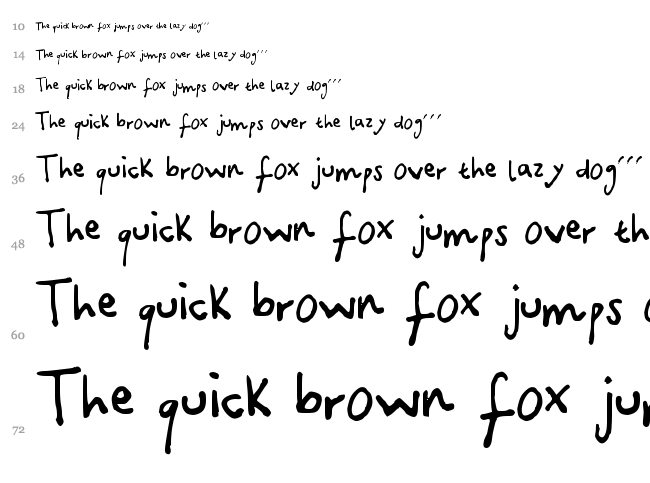 10 The quick brown fox jumps over the lazy dog'''
14 The quick brown fox jumps over the lazy dog'''
18 The quick brown fox jumps over the lazy dog'''
24 The quick brown fox jumps over the lazy dog'''
36 The quick brown fox jumps over the lazy dog'''
48 The quick brown fox jumps over th
60 The quick brown fox jumps o
72 The quick brown fox jum